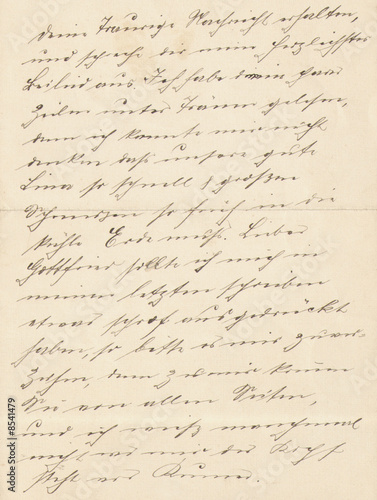 deine Traurige Nachricht erhalten,
und spreche dir mein herzlichstes
Beileid aus. Ich habe dein paar
Zeilen unter Tränen gelesen,
denn ich konnte mir nicht
denken daß unsere gute
Lina so schnell & großen
Schmerzen so früh in die
kühle Erde muß. Lieber
Gottfried sollte ich mich in
meinem letzten schreiben
etwas schrof ausgedrückt
haben, so bitte es mir zu ver-
Zeihen, denn zu mir kommen
Sie von allen Seiten,
und ich weiß manchmal
nicht wo mir der Kopf
steht vor Kummer.
Adobe Stock | #8541479